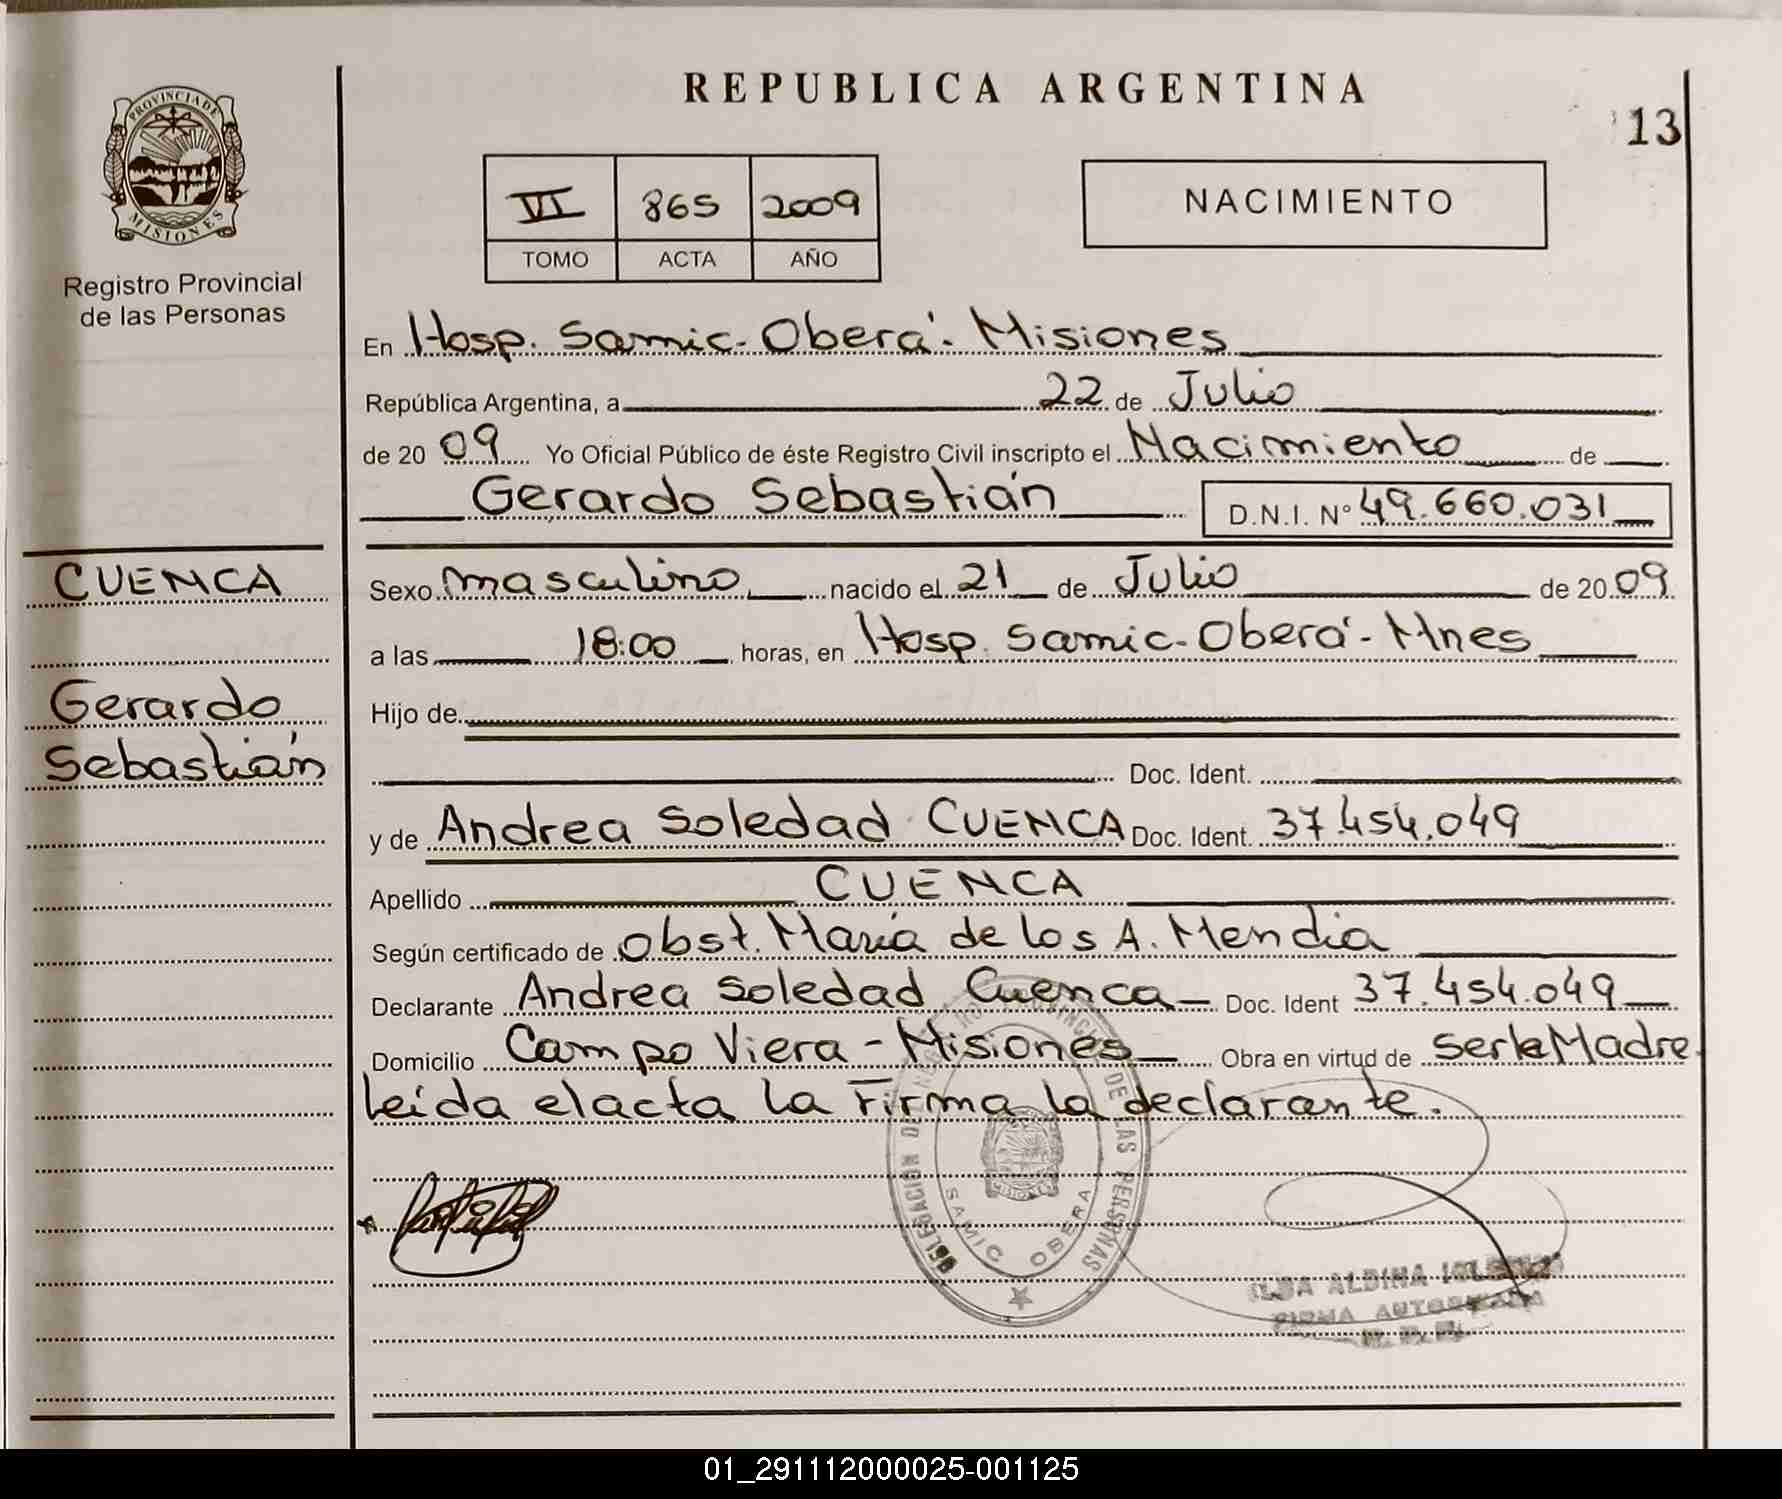 REPUBLICA ARGENTINA
13
PROVINCIA DE
MISIONES
Registro Provincial
de las Personas
VI 865 2009
TOMO ACTA AÑO
NACIMIENTO
En Hosp. Samic - Oberá - Misiones
República Argentina, a 22 de Julio
de 20 09 Yo Oficial Público de éste Registro Civil inscripto el Nacimiento de
Gerardo Sebastián D.N.I. N° 49.660.031
CUENCA
Gerardo
Sebastián
Sexo masculino nacido el 21 de Julio de 20 09
a las 18:00 horas, en Hosp. Samic - Oberá - Mnes
Hijo de
Doc. Ident.
y de Andrea Soledad CUENCA Doc. Ident. 37.454.049
Apellido CUENCA
Según certificado de Obst. María de los A. Mendia
Declarante Andrea Soledad Cuenca Doc. Ident 37.454.049
Domicilio Campo Viera - Misiones Obra en virtud de ser la Madre.
Leída el acta la Firma la declarante.
DELEGACION DEL REGISTRO PROVINCIAL DE LAS PERSONAS
SAMIC OBERA
MISIONES
ALDINA
FIRMA AUTORIZADA
01_291112000025-001125